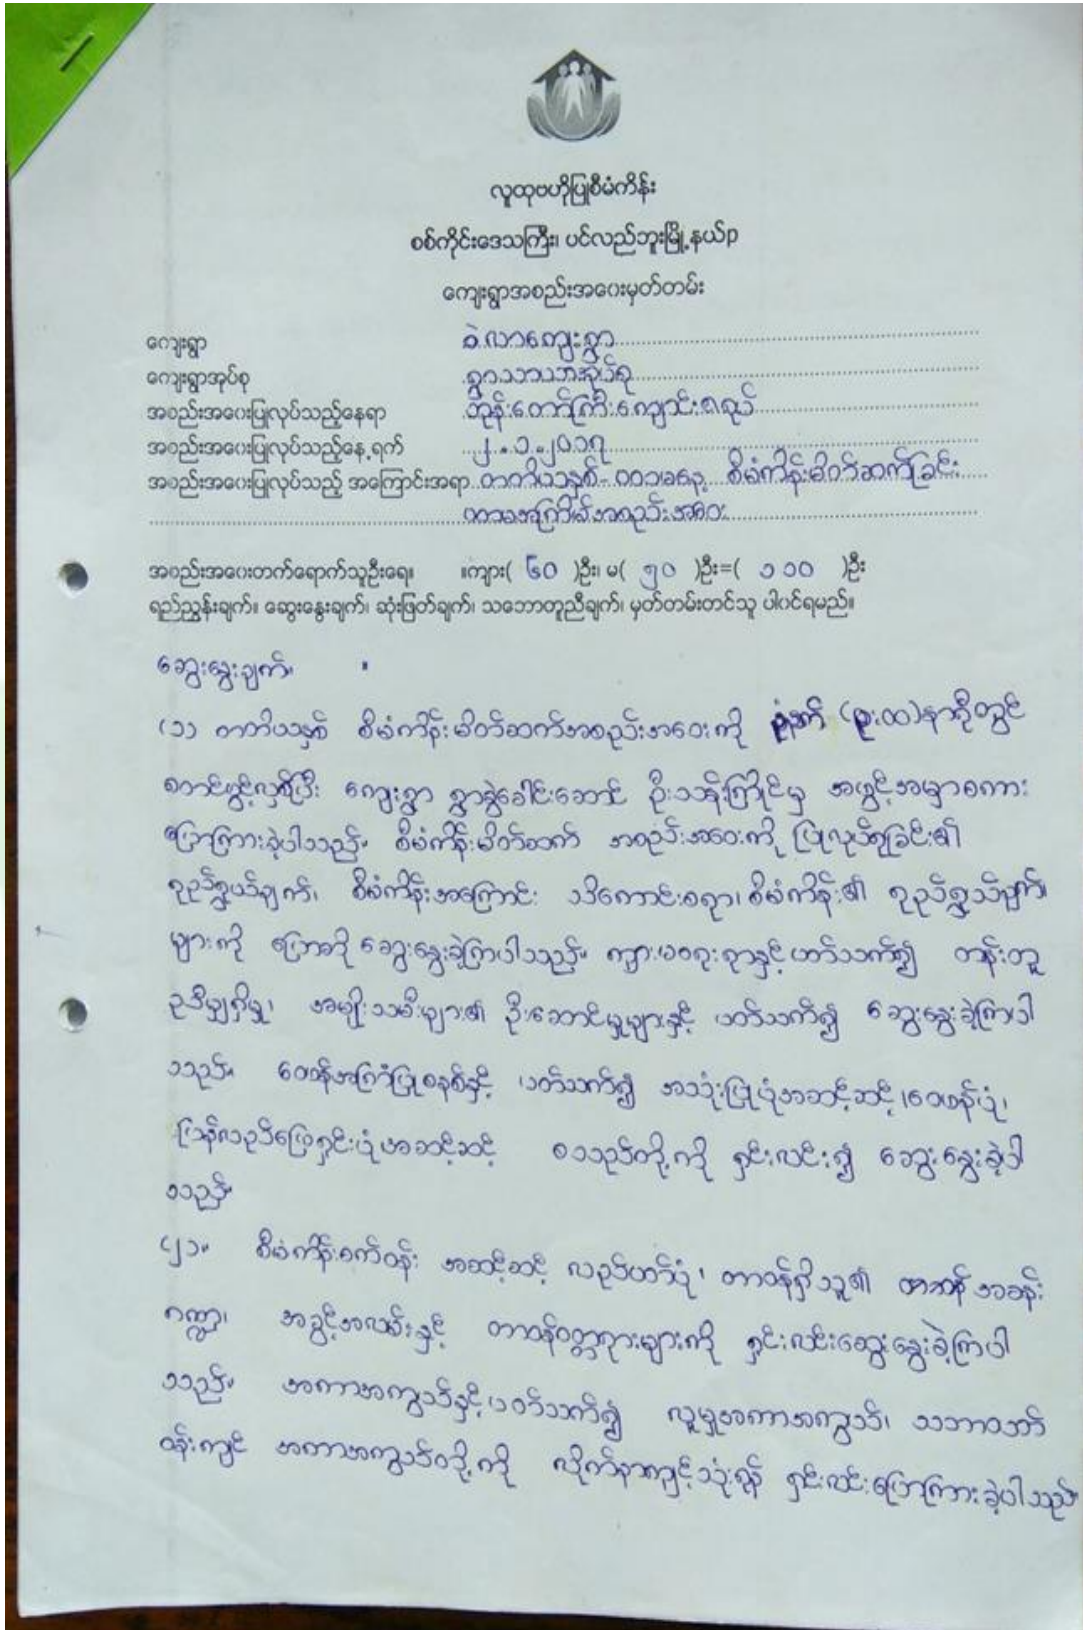 လူထုဗဟိုပြုစီမံကိန်း
စစ်ကိုင်းဒေသကြီး၊ ပင်လည်ဘူးမြို့နယ်
ကျေးရွာအစည်းအဝေးမှတ်တမ်း
ကျေးရွာ ခဲလာကျေးရွာ
ကျေးရွာအုပ်စု
အစည်းအဝေးပြုလုပ်သည့်နေရာ ဘုန်းတော်ကြီးကျောင်းဇရပ်
အစည်းအဝေးပြုလုပ်သည့်နေ့ရက် ၂.၁.၂၀၁၇
အစည်းအဝေးပြုလုပ်သည့် အကြောင်းအရာ တတိယနှစ် - စီမံကိန်းမိတ်ဆက်ခြင်း
ပထမအကြိမ်အစည်းအဝေး
အစည်းအဝေးတက်ရောက်သူဦးရေ။ ။ကျား( ၆၀ )ဦး၊ မ( ၅၀ )ဦး=( ၁၁၀ )ဦး
ရည်ညွှန်းချက်။ ဆွေးနွေးချက်၊ ဆုံးဖြတ်ချက်၊ သဘောတူညီချက်၊ မှတ်တမ်းတင်သူ ပါဝင်ရမည်။
ဆွေးနွေးချက်။ ။
(၁) တတိယနှစ် စီမံကိန်းမိတ်ဆက်အစည်းအဝေးကို နာရီတွင်
စတင်ဖွင့်လှစ်ပြီး ကျေးရွာ ရွာခွဲခေါင်းဆောင် ဦးသန်းကြိုင်မှ အဖွင့်အမှာစကား
ပြောကြားခဲ့ပါသည်။ စီမံကိန်းမိတ်ဆက် အစည်းအဝေးကို ပြုလုပ်ရခြင်း၏
ရည်ရွယ်ချက်၊ စီမံကိန်းအကြောင်း သိကောင်းစရာ၊ စီမံကိန်း၏ ရည်ရွယ်ချက်
များကို ပြောဆို ဆွေးနွေးခဲ့ကြပါသည်။ ကျား၊မရေးရာနှင့်ပတ်သက်၍ တန်းတူ
ညီမျှရှိမှု၊ အမျိုးသမီးများ၏ ဦးဆောင်မှုများနှင့် ပတ်သက်၍ ဆွေးနွေးခဲ့ကြပါ
သည်။ ဝေဖန်အကြံပြုစနစ်နှင့် ပတ်သက်၍ အသုံးပြုပုံအဆင့်ဆင့်၊ ဝေဖန်ပုံ၊
ပြန်လည်ဖြေရှင်းပုံအဆင့်ဆင့် စသည်တို့ကို ရှင်းလင်း၍ ဆွေးနွေးခဲ့ပါ
သည်။
(၂)။ စီမံကိန်းစက်ဝန်း အဆင့်ဆင့် လည်ပတ်ပုံ၊ တာဝန်ရှိသူ၏ အခန်း
ကဏ္ဍ၊ အခွင့်အလမ်းနှင့် တာဝန်ဝတ္တရားများကို ရှင်းလင်းဆွေးနွေးခဲ့ကြပါ
သည်။ အကာအကွယ်နှင့်ပတ်သက်၍ လူမှုအကာအကွယ်၊ သဘာဝပတ်
ဝန်းကျင် အကာအကွယ်တို့ကို လိုက်နာကျင့်သုံးရန် ရှင်းလင်းပြောကြားခဲ့ပါသည်။